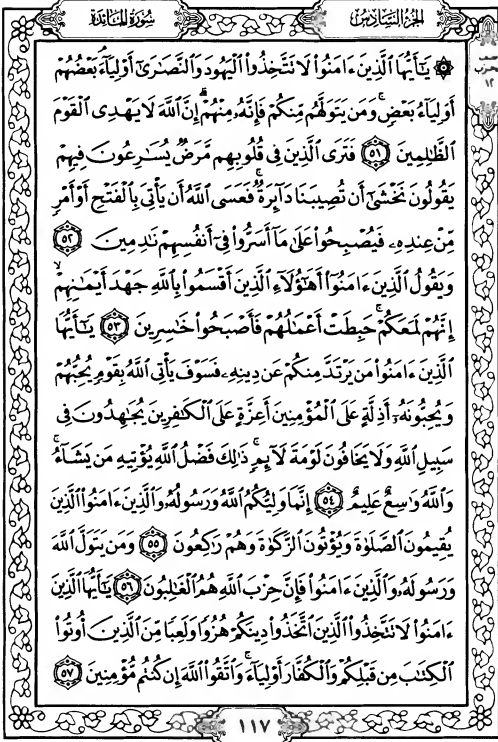 الجزء السادس
سورة المائدة
نصف
حزب
١٢
۞ يَٰٓأَيُّهَا ٱلَّذِينَ ءَامَنُوا۟ لَا تَتَّخِذُوا۟ ٱلْيَهُودَ وَٱلنَّصَٰرَىٰٓ أَوْلِيَآءَۘ بَعْضُهُمْ
أَوْلِيَآءُ بَعْضٍۚ وَمَن يَتَوَلَّهُم مِّنكُمْ فَإِنَّهُۥ مِنْهُمْۗ إِنَّ ٱللَّهَ لَا يَهْدِى ٱلْقَوْمَ
ٱلظَّٰلِمِينَ ٥١ فَتَرَى ٱلَّذِينَ فِى قُلُوبِهِم مَّرَضٌ يُسَٰرِعُونَ فِيهِمْ
يَقُولُونَ نَخْشَىٰٓ أَن تُصِيبَنَا دَآئِرَةٌۚ فَعَسَى ٱللَّهُ أَن يَأْتِىَ بِٱلْفَتْحِ أَوْ أَمْرٍ
مِّنْ عِندِهِۦ فَيُصْبِحُوا۟ عَلَىٰ مَآ أَسَرُّوا۟ فِىٓ أَنفُسِهِمْ نَٰدِمِينَ ٥٢
وَيَقُولُ ٱلَّذِينَ ءَامَنُوٓا۟ أَهَٰٓؤُلَآءِ ٱلَّذِينَ أَقْسَمُوا۟ بِٱللَّهِ جَهْدَ أَيْمَٰنِهِمْۙ
إِنَّهُمْ لَمَعَكُمْۚ حَبِطَتْ أَعْمَٰلُهُمْ فَأَصْبَحُوا۟ خَٰسِرِينَ ٥٣ يَٰٓأَيُّهَا
ٱلَّذِينَ ءَامَنُوا۟ مَن يَرْتَدَّ مِنكُمْ عَن دِينِهِۦ فَسَوْفَ يَأْتِى ٱللَّهُ بِقَوْمٍ يُحِبُّهُمْ
وَيُحِبُّونَهُۥٓ أَذِلَّةٍ عَلَى ٱلْمُؤْمِنِينَ أَعِزَّةٍ عَلَى ٱلْكَٰفِرِينَ يُجَٰهِدُونَ فِى
سَبِيلِ ٱللَّهِ وَلَا يَخَافُونَ لَوْمَةَ لَآئِمٍۚ ذَٰلِكَ فَضْلُ ٱللَّهِ يُؤْتِيهِ مَن يَشَآءُۚ
وَٱللَّهُ وَٰسِعٌ عَلِيمٌ ٥٤ إِنَّمَا وَلِيُّكُمُ ٱللَّهُ وَرَسُولُهُۥ وَٱلَّذِينَ ءَامَنُوا۟ ٱلَّذِينَ
يُقِيمُونَ ٱلصَّلَوٰةَ وَيُؤْتُونَ ٱلزَّكَوٰةَ وَهُمْ رَٰكِعُونَ ٥٥ وَمَن يَتَوَلَّ ٱللَّهَ
وَرَسُولَهُۥ وَٱلَّذِينَ ءَامَنُوا۟ فَإِنَّ حِزْبَ ٱللَّهِ هُمُ ٱلْغَٰلِبُونَ ٥٦ يَٰٓأَيُّهَا ٱلَّذِينَ
ءَامَنُوا۟ لَا تَتَّخِذُوا۟ ٱلَّذِينَ ٱتَّخَذُوا۟ دِينَكُمْ هُزُوًا وَلَعِبًا مِّنَ ٱلَّذِينَ أُوتُوا۟
ٱلْكِتَٰبَ مِن قَبْلِكُمْ وَٱلْكُفَّارَ أَوْلِيَآءَۚ وَٱتَّقُوا۟ ٱللَّهَ إِن كُنتُم مُّؤْمِنِينَ ٥٧
١١٧